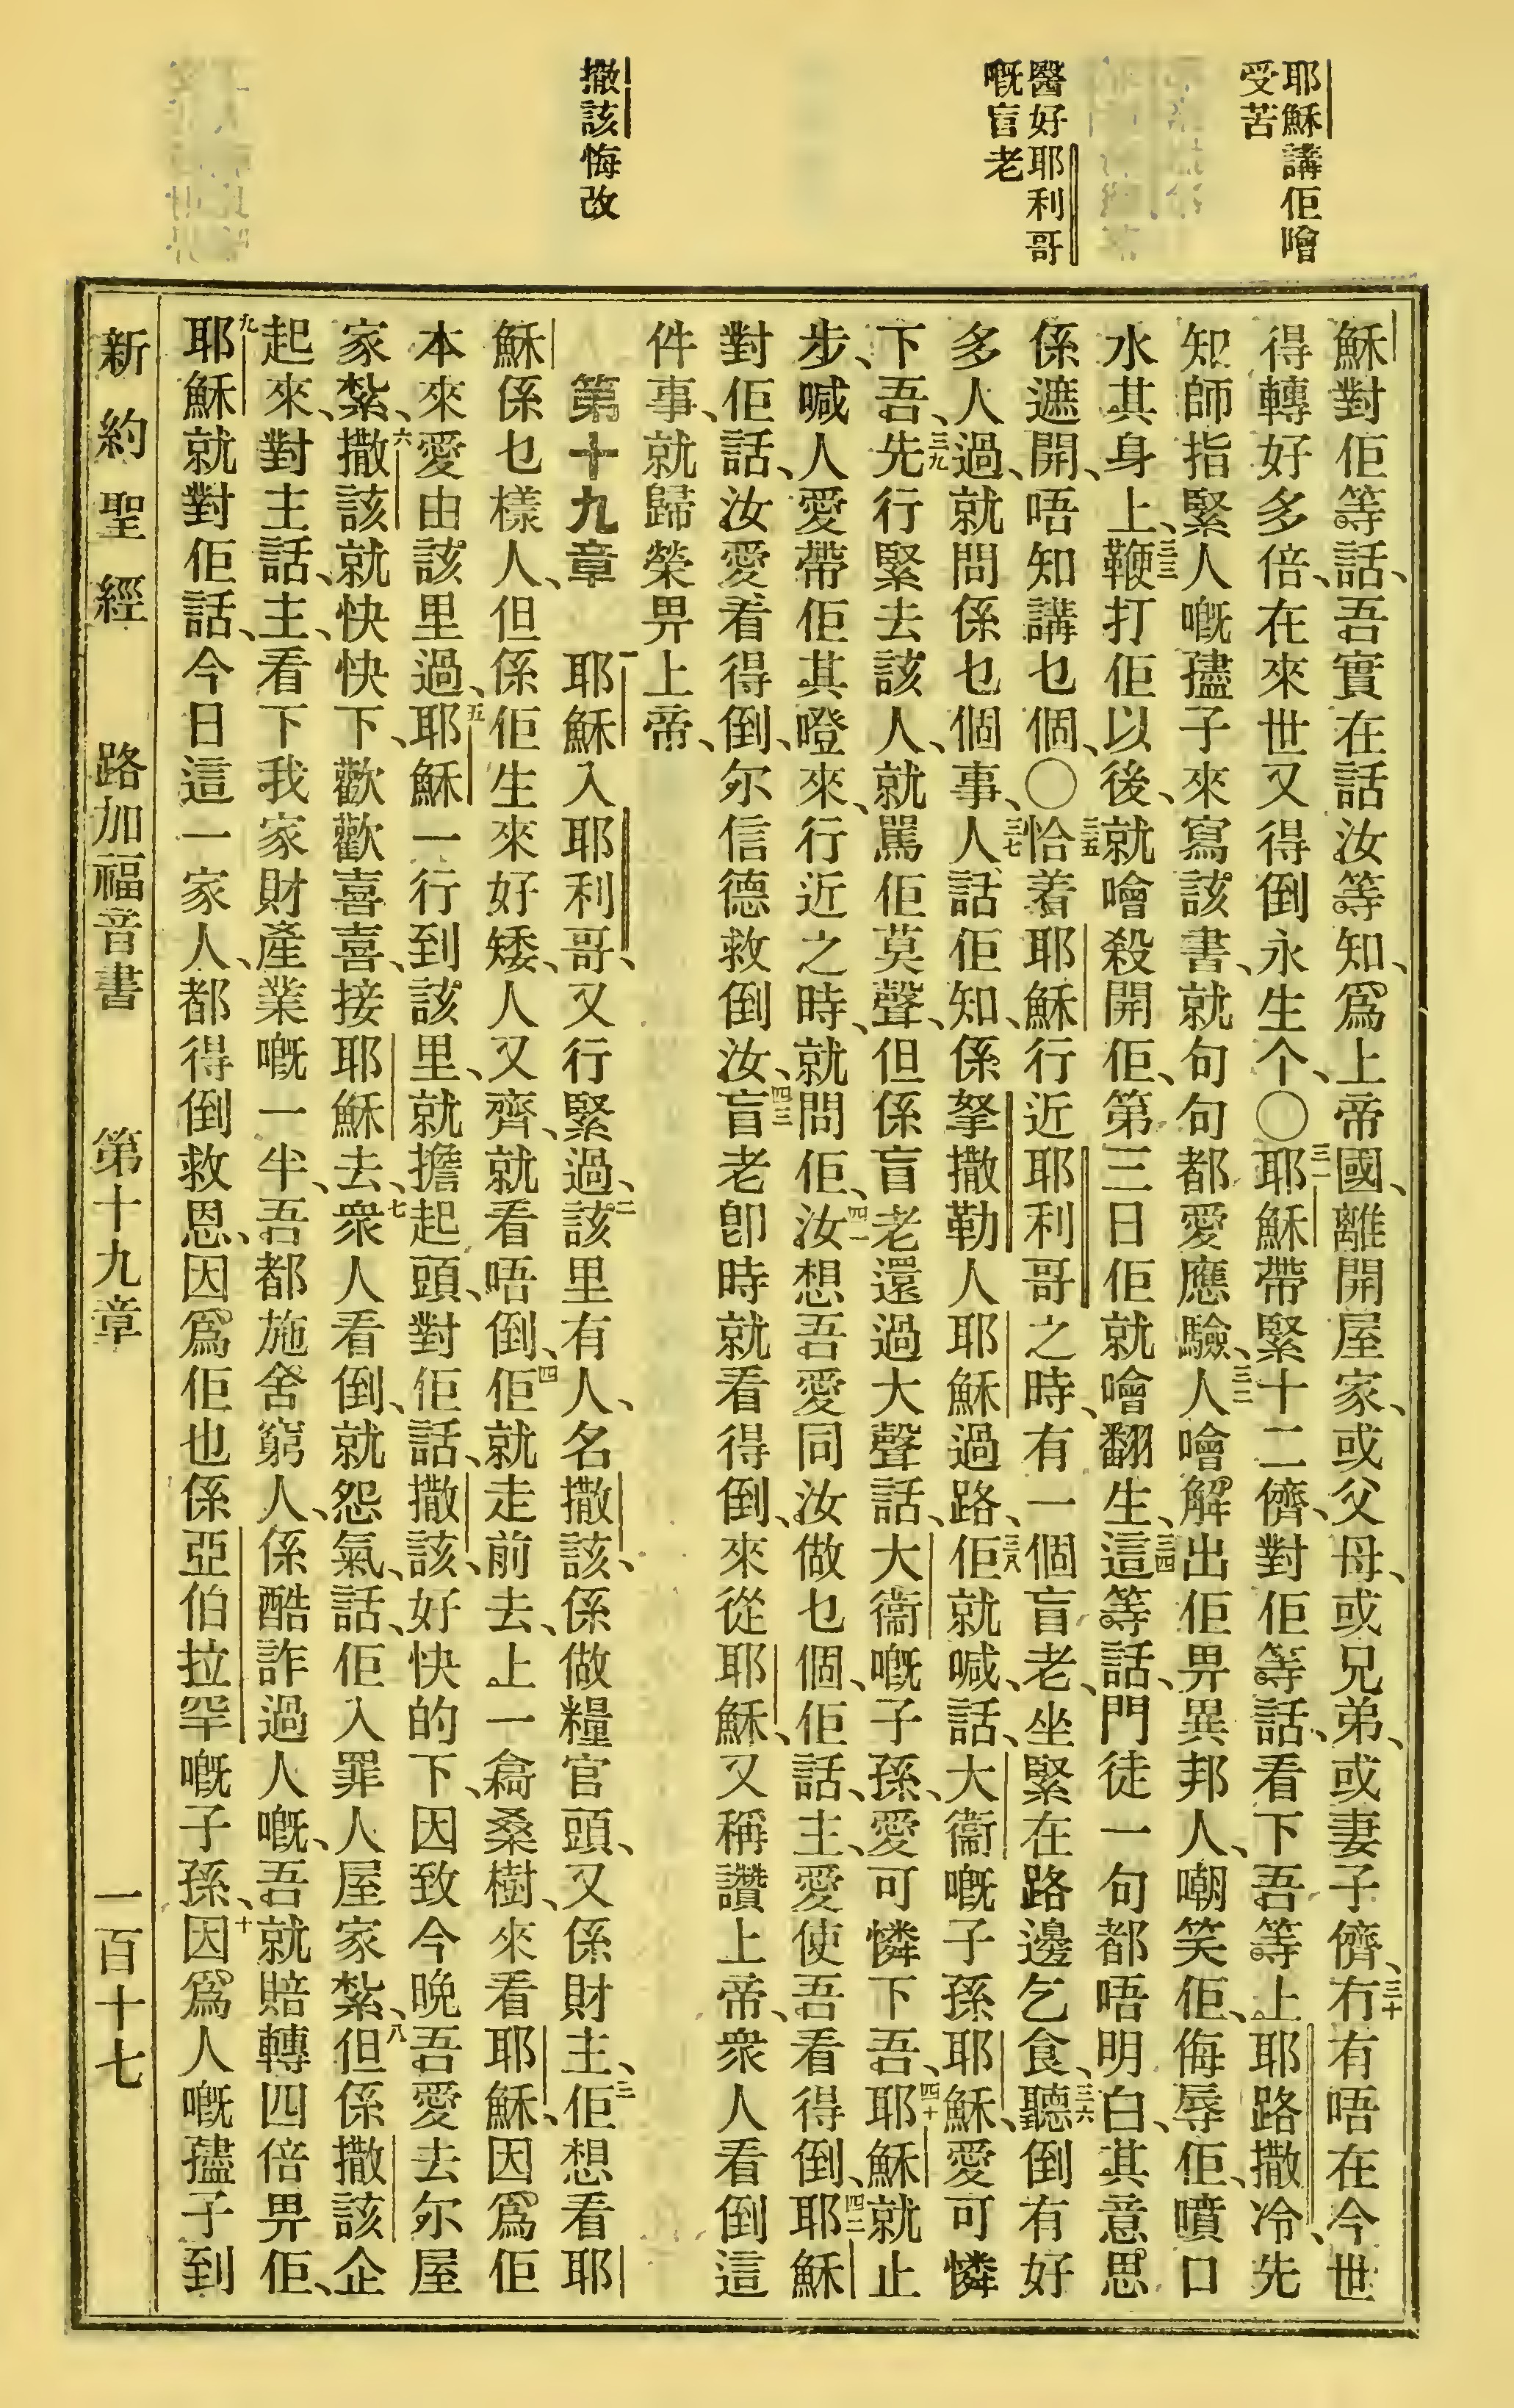 耶穌講佢噲
受苦
醫好耶利哥
嘅盲老
撒該悔改
穌對佢等話、吾實在話汝等知、爲上帝國、離開屋家、或父母、或兄弟、或妻子儕、三十冇有唔在今世
得轉好多倍、在來世又得倒永生个、〇三一耶穌帶緊十二儕、對佢等話、看下吾等上耶路撒冷、先
知師指緊人嘅孻子來寫該書、就句句都愛應驗、三二人噲解出佢畀異邦人、嘲笑佢、侮辱佢、噴口
水其身上、三三鞭打佢以後、就噲殺開佢、第三日佢就噲翻生、三四這等話、門徒一句都唔明白、其意思
係遮開、唔知講乜個、〇三五恰着耶穌行近耶利哥之時、有一個盲老、坐緊在路邊乞食、三六聽倒有好
多人過、就問係乜個事、三七人話佢知、係拏撒勒人耶穌過路、三八佢就喊話、大衞嘅子孫耶穌、愛可憐
下吾、三九先行緊去該人、就罵佢莫聲、但係盲老還過大聲話、大衞嘅子孫、愛可憐下吾、四十耶穌就止
步、喊人愛帶佢其噔來、行近之時、就問佢、四一汝想吾愛同汝做乜個、佢話、主、愛使吾看得倒、四二耶穌
對佢話、汝愛看得倒、尔信德救倒汝、四三盲老卽時就看得倒、來從耶穌、又稱讚上帝、衆人看倒這
件事、就歸榮畀上帝、
第十九章　一耶穌入耶利哥、又行緊過、二該里有人、名撒該、係做糧官頭、又係財主、三佢想看耶
穌係乜樣人、但係佢生來好矮、人又齊、就看唔倒、四佢就走前去、上一翕桑樹、來看耶穌、因爲佢
本來愛由該里過、五耶穌一行到該里、就擔起頭、對佢話、撒該、好快的下、因致今晚吾愛去尔屋
家紮、六撒該就快快下、歡歡喜喜、接耶穌去、七衆人看倒、就怨氣話、佢入罪人屋家紮、八但係撒該企
起來、對主話、主、看下我家財產業嘅一半、吾都施舍窮人、係酷詐過人嘅、吾就賠轉四倍畀佢、
九耶穌就對佢話、今日這一家人、都得倒救恩、因爲佢也係亞伯拉罕嘅子孫、十因爲人嘅孻子到
新約聖經　路加福音書　第十九章　一百十七